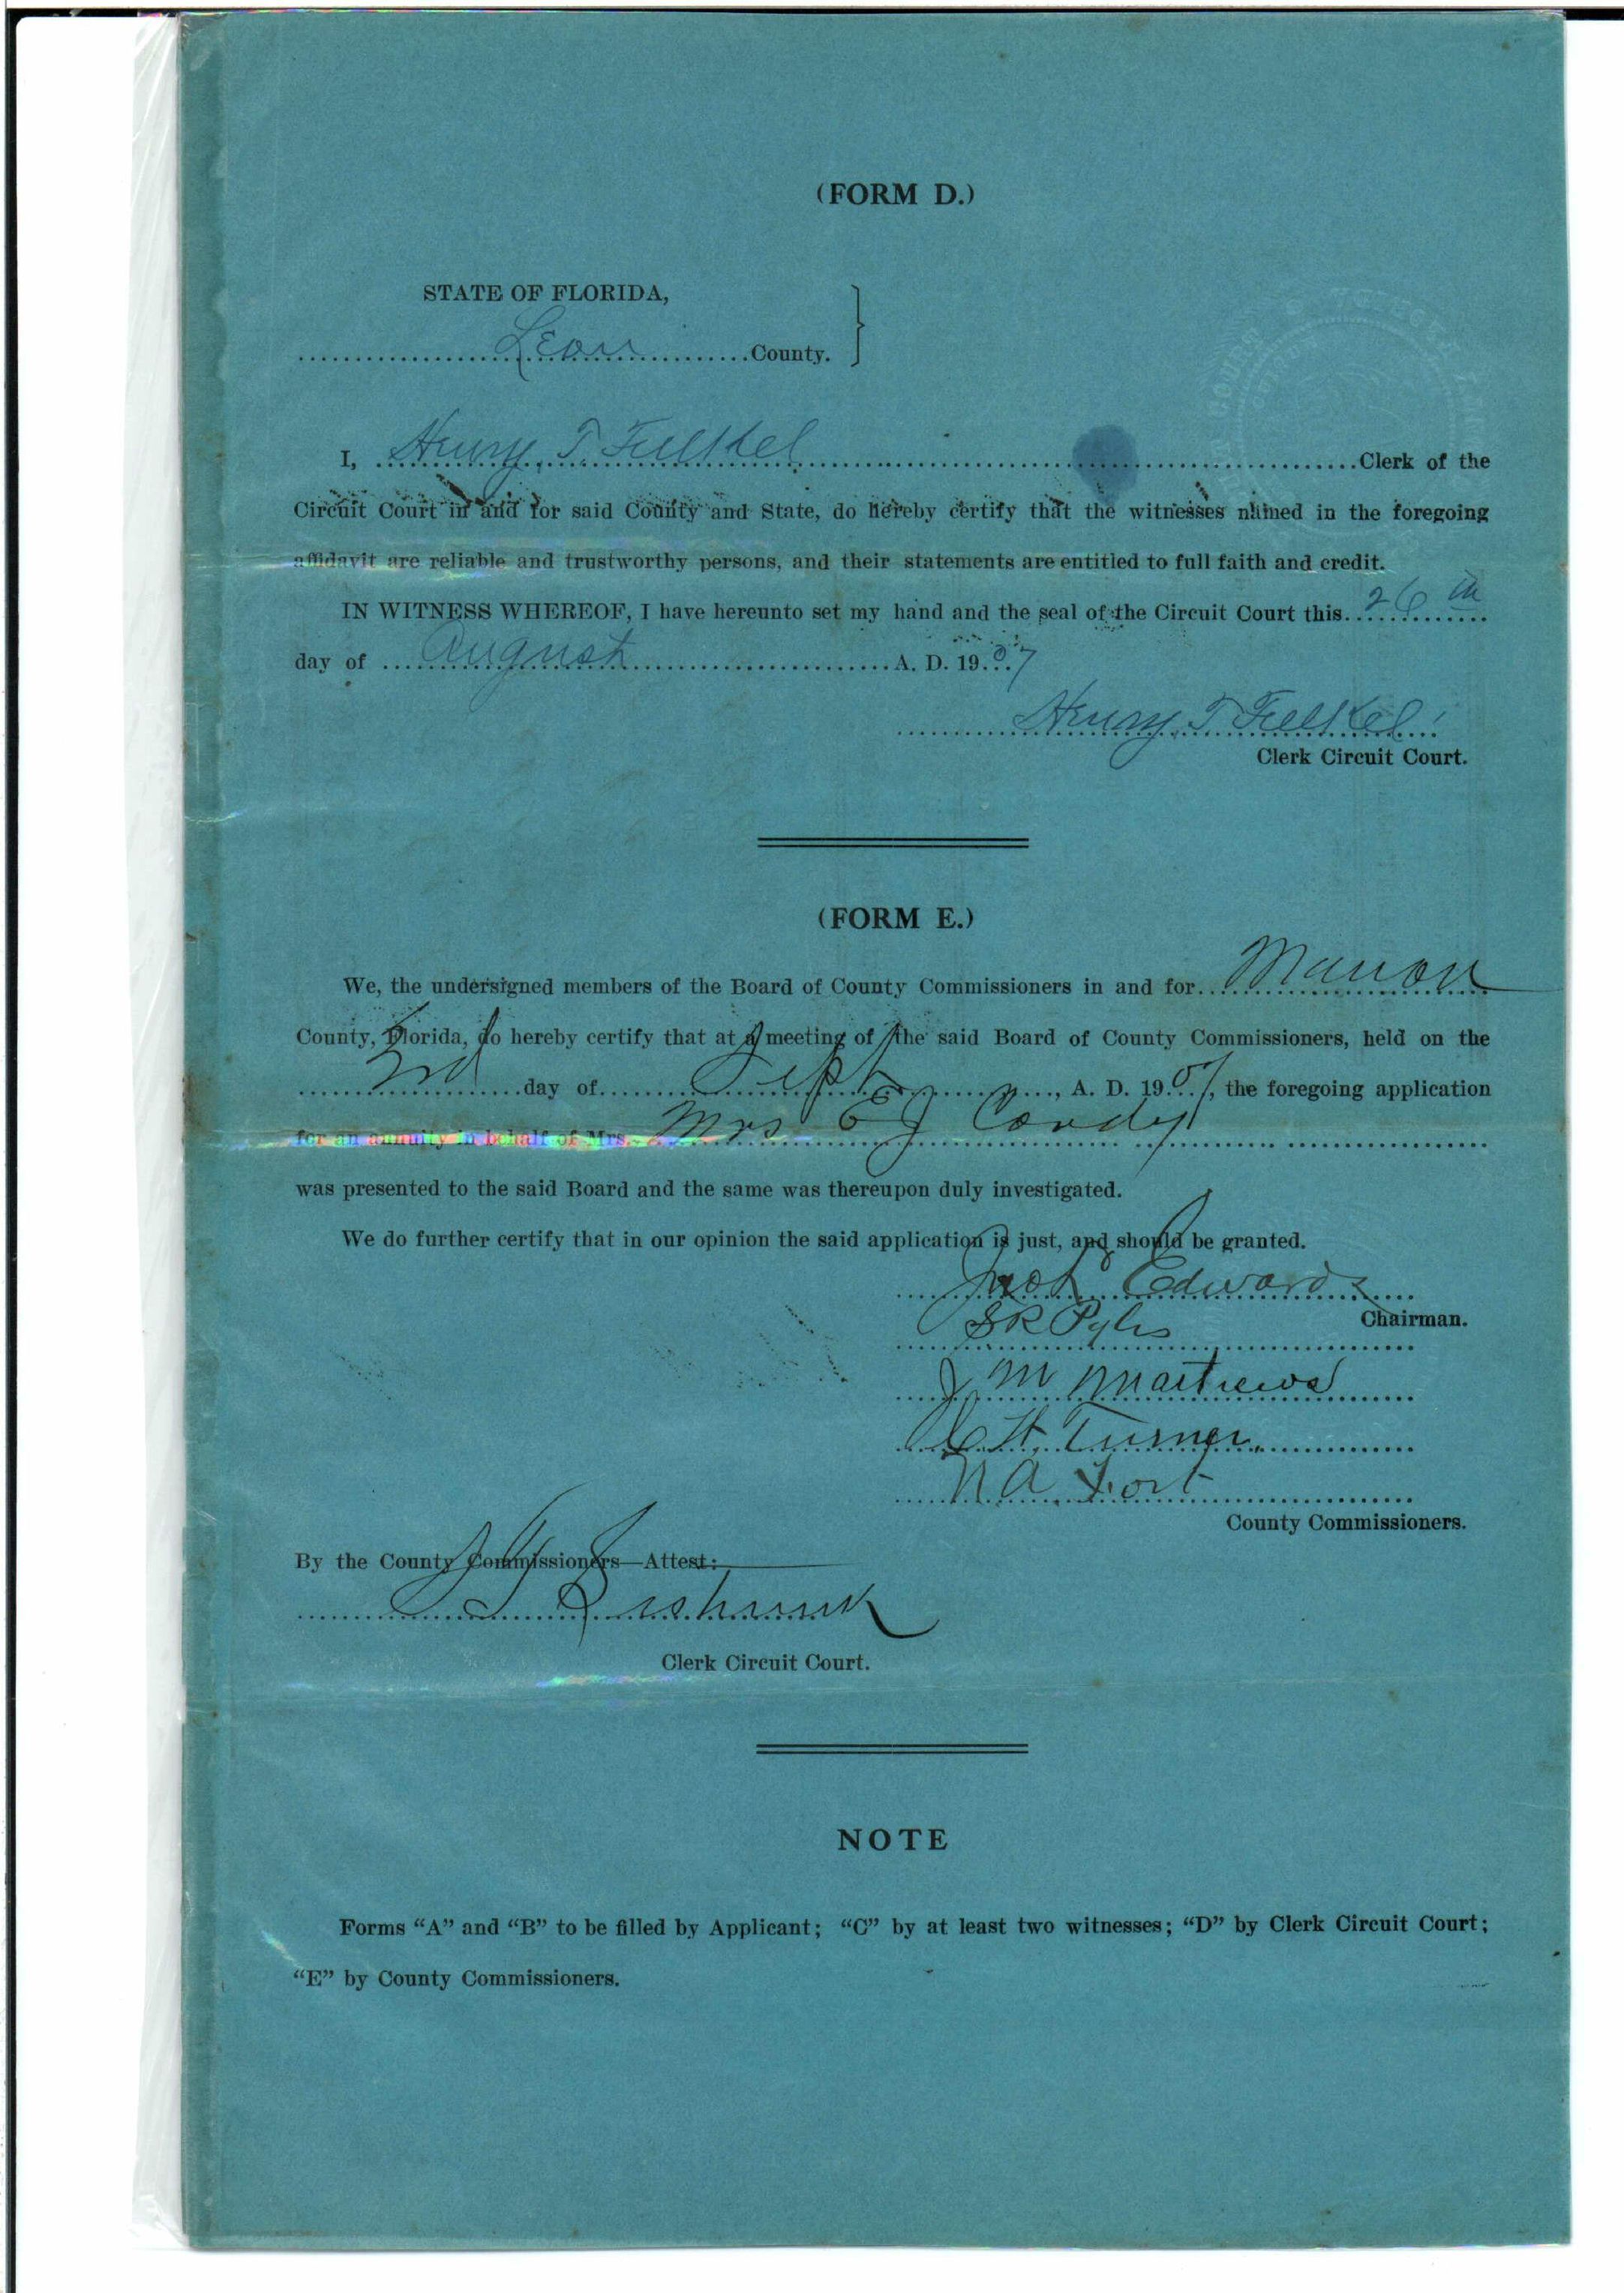 (FORM D.)
STATE OF FLORIDA,
Leon County.
I, Henry T. Felkel Clerk of the
Circuit Court in and for said County and State, do hereby certify that the witnesses named in the foregoing
affidavit are reliable and trustworthy persons, and their statements are entitled to full faith and credit.
IN WITNESS WHEREOF, I have hereunto set my hand and the seal of the Circuit Court this 26th
day of August A. D. 1907
Henry T Felkel
Clerk Circuit Court.
(FORM E.)
We, the undersigned members of the Board of County Commissioners in and for Marion
County, Florida, do hereby certify that at a meeting of the said Board of County Commissioners, held on the
3rd day of Sept, A. D. 1907, the foregoing application
for an annuity in behalf of Mrs. Mrs E J
was presented to the said Board and the same was thereupon duly investigated.
We do further certify that in our opinion the said application is just, and should be granted.
Jno L Edwards
Chairman.
S R Pyles
J M Matthews
C H Turner
N A Fort
County Commissioners.
By the County Commissioners—Attest:
Clerk Circuit Court.
NOTE
Forms “A” and “B” to be filled by Applicant; “C” by at least two witnesses; “D” by Clerk Circuit Court;
“E” by County Commissioners.